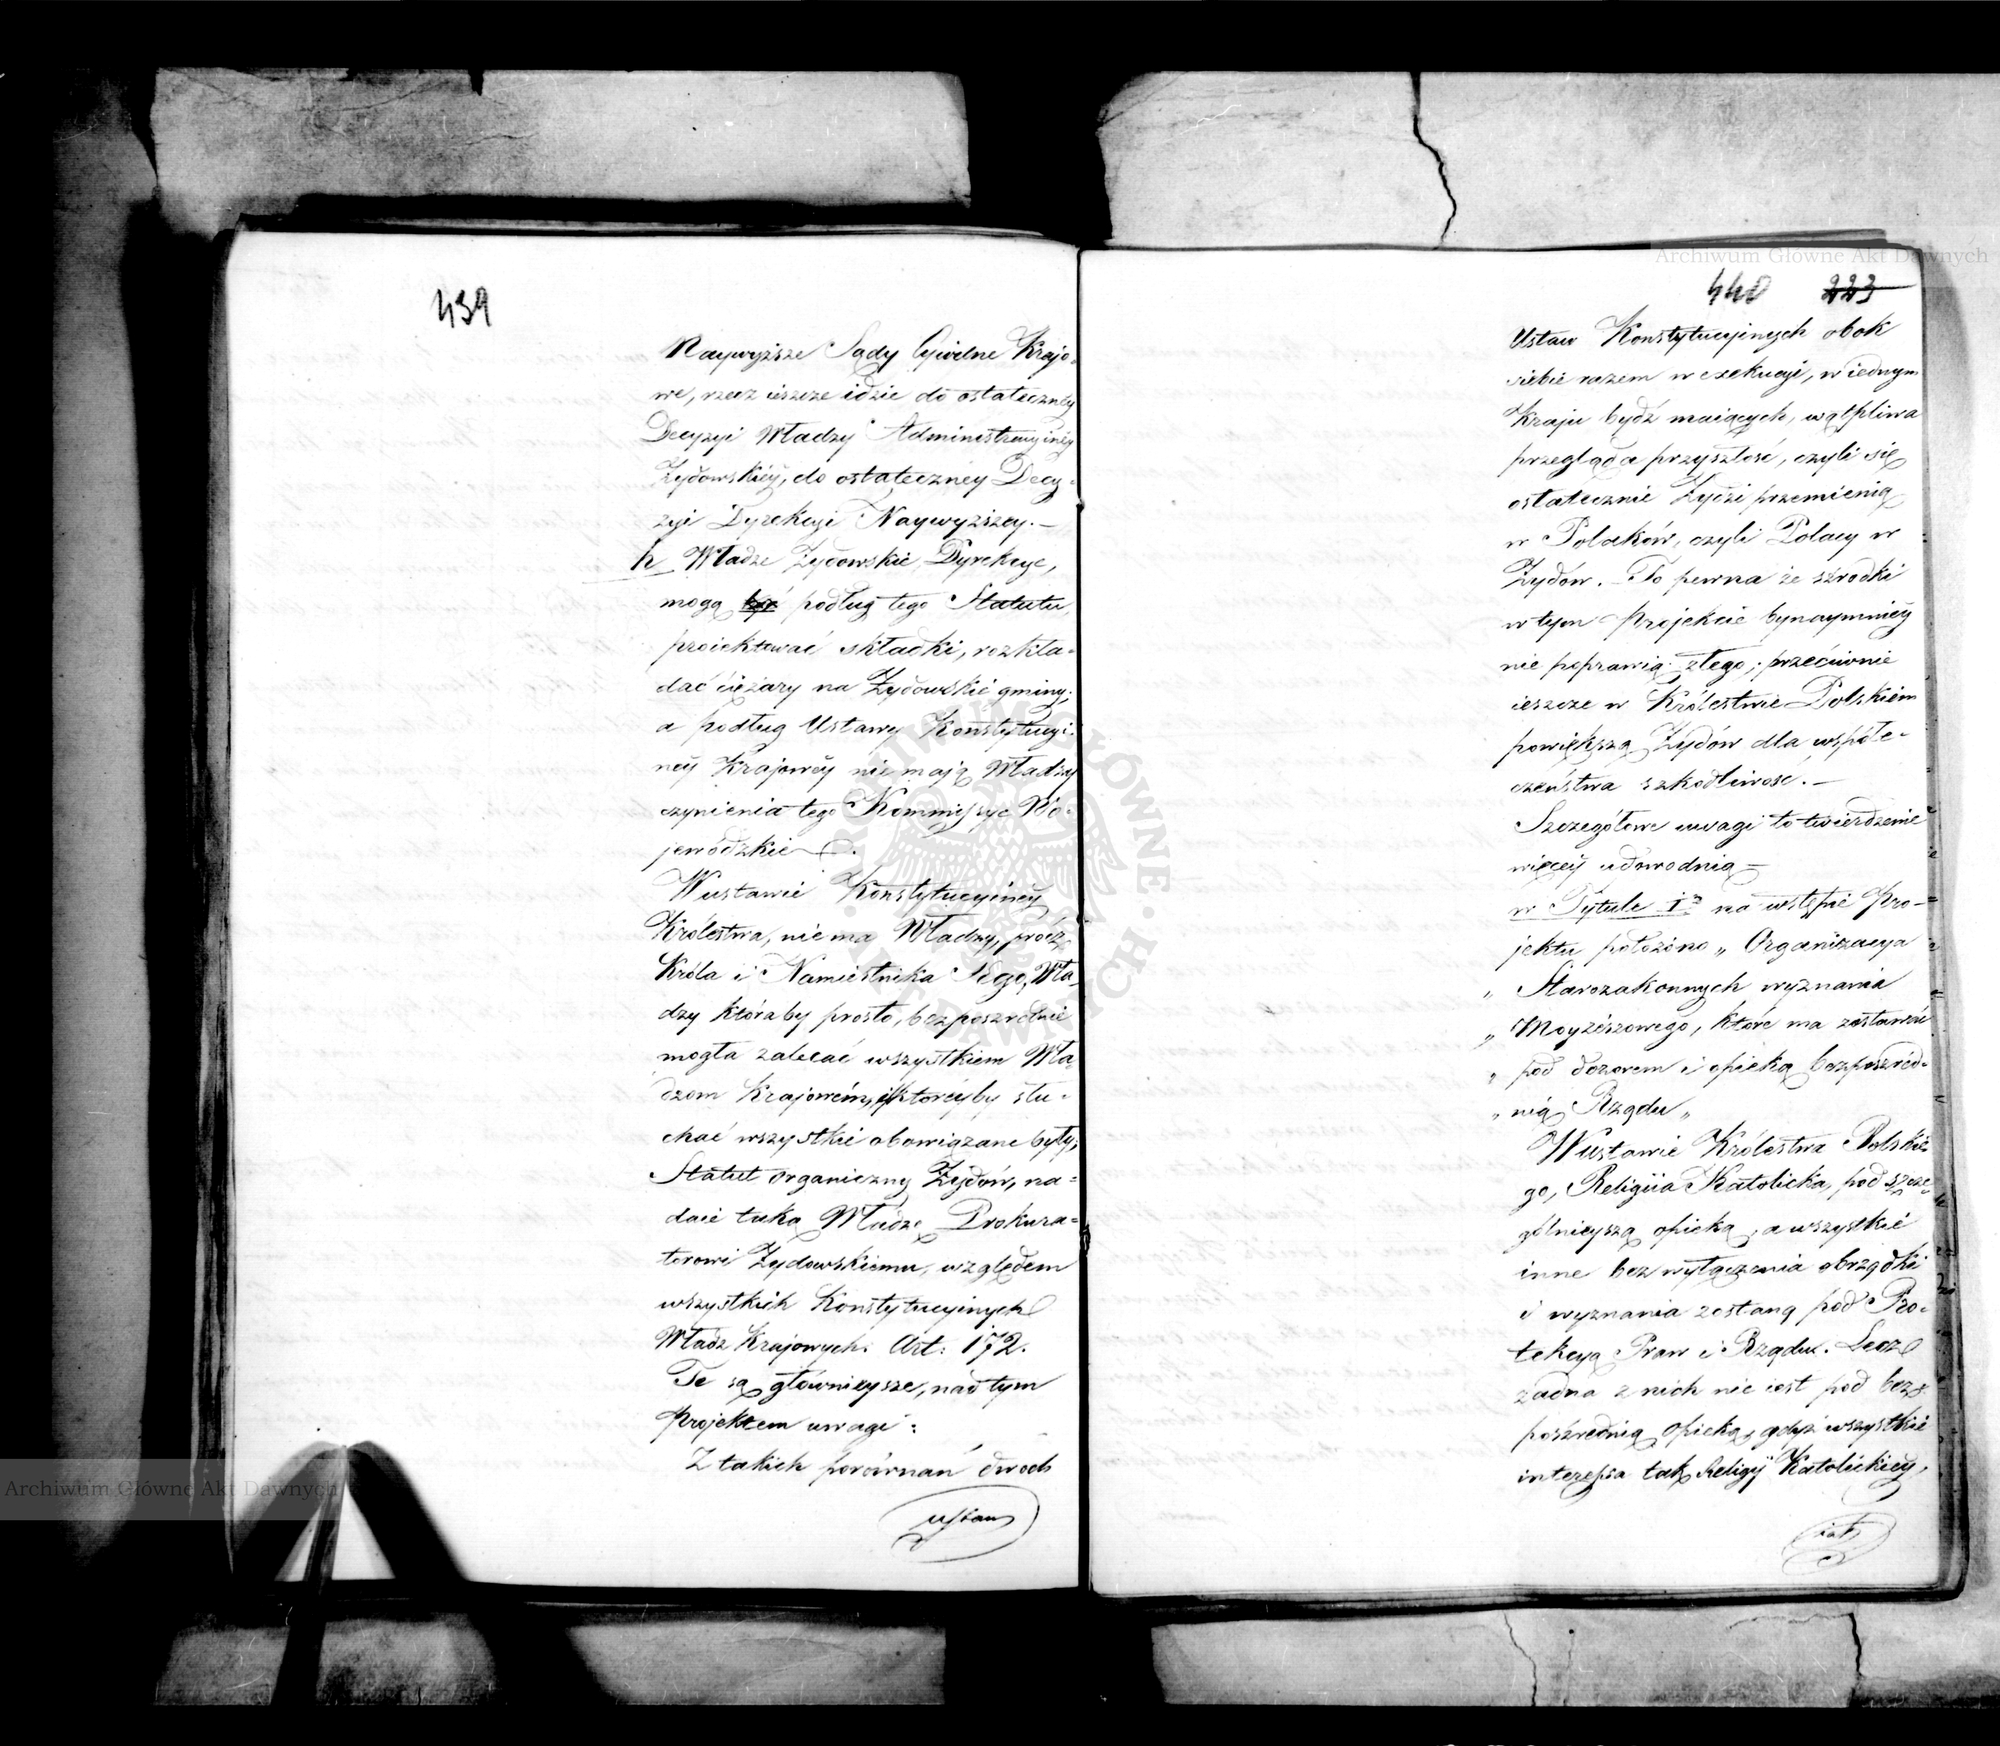 439
Naywyższe Sądy Cywilne Krajo-
we, rzecz ieszcze idzie do ostateczney
Decyzyi Władzy Administracyinéy
Żydowskiéy, do ostateczney Decy-
zyi Dyrekcyi Naywyższey.—
h Władze Żydowskie, Dyrekcye,
mogą podług tego Statutu,
proiektować składki, rozkła-
dać ciężary na Żydowskie gminy;
a podług Ustawy Konstytucyi-
ney Krajowéy nie mają Władzy
czynienia tego Kommissye Wo-
jewódzkie.
W ustawie Konstytucyinéy
Królestwa, nie ma Władzy, prócz
Króla i Namiestnika JEgo, Wła-
dzy któraby prosto, bezposzrednie
mogła zalecać wszystkiem Wła-
dzom Krajowém, któreyby słu-
chać wszystkie obowiązane były;
Statut organiczny Żydów, na-
daie taką Władzę Prokura-
torowi Żydowskiemu, względem
wszystkich Konstytucyinych
Władz Krajowych. Art: 172.
Te są głównieysze, nad tym
Projektem uwagi:
Z takich porównań dwoch
ustaw
440 223
Ustaw Konstytucyinych obok
siebie razem w exekucyi, w iednym
Kraju bydź maiących, wątpliwa
przegląda przyszłość, czyli się
ostatecznie Żydzi przemienią
w Polaków, czyli Polacy w
Żydów. To pewna że szrodki
w tym Projekcie bynaymniéy
nie poprawią złego; przeciwnie
ieszcze w Królestwie Polskiém
powiększą Żydów dla współe-
czeństwa szkodliwość.—
Szczegółowe uwagi to twierdzenie
więcéy udowodnią—
w Tytule I na wstępie Pro-
jektu położono „ Organizacya
„ Starozakonnych wyznania
„ Moyżeszowego, które ma zostawać
„ pod dozorem i opieką bezpośréd-
„ nią Rządu „
W ustawie Królestwa Polskie-
go, Religiia Katolicka, pod szcze-
gólnieyszą opieką, a wszystkie
inne bez wyłączenia obrządki
i wyznania zostaną pod Pro-
tekcyą Praw i Rządu. Lecz
żadna z nich nie iest pod bez-
pośrednią opieką, gdyż wszystkie
interessa tak Religii Katolickiey,
iak
Archiwum Główne Akt Dawnych
Archiwum Główne Akt Dawnych